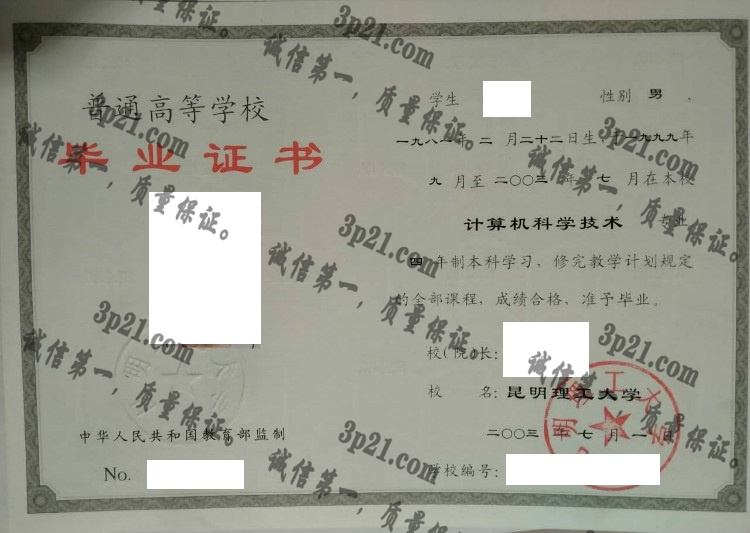 普通高等学校
毕业证书
中华人民共和国教育部监制
No.
学生 性别 男 ,
一九八一年 二 月二十二日生,于一九九九年
九 月至 二〇〇三 年 七 月在本校
计算机科学技术 专业
四 年制本科学习，修完教学计划规定
的全部课程，成绩合格，准予毕业。
校(院)长:
校 名: 昆明理工大学
二〇〇三 年 七 月 一 日
学校编号:
3p21.com
诚信第一，质量保证。
3p21.com
诚信第一，质量保证。
3p21.com
诚信第一，质量保证。
3p21.com
诚信第一，质量保证。
3p21.com
诚信第一，质量保证。
3p21.com
诚信第一，质量保证。
3p21.com
诚信第一，质量保证。